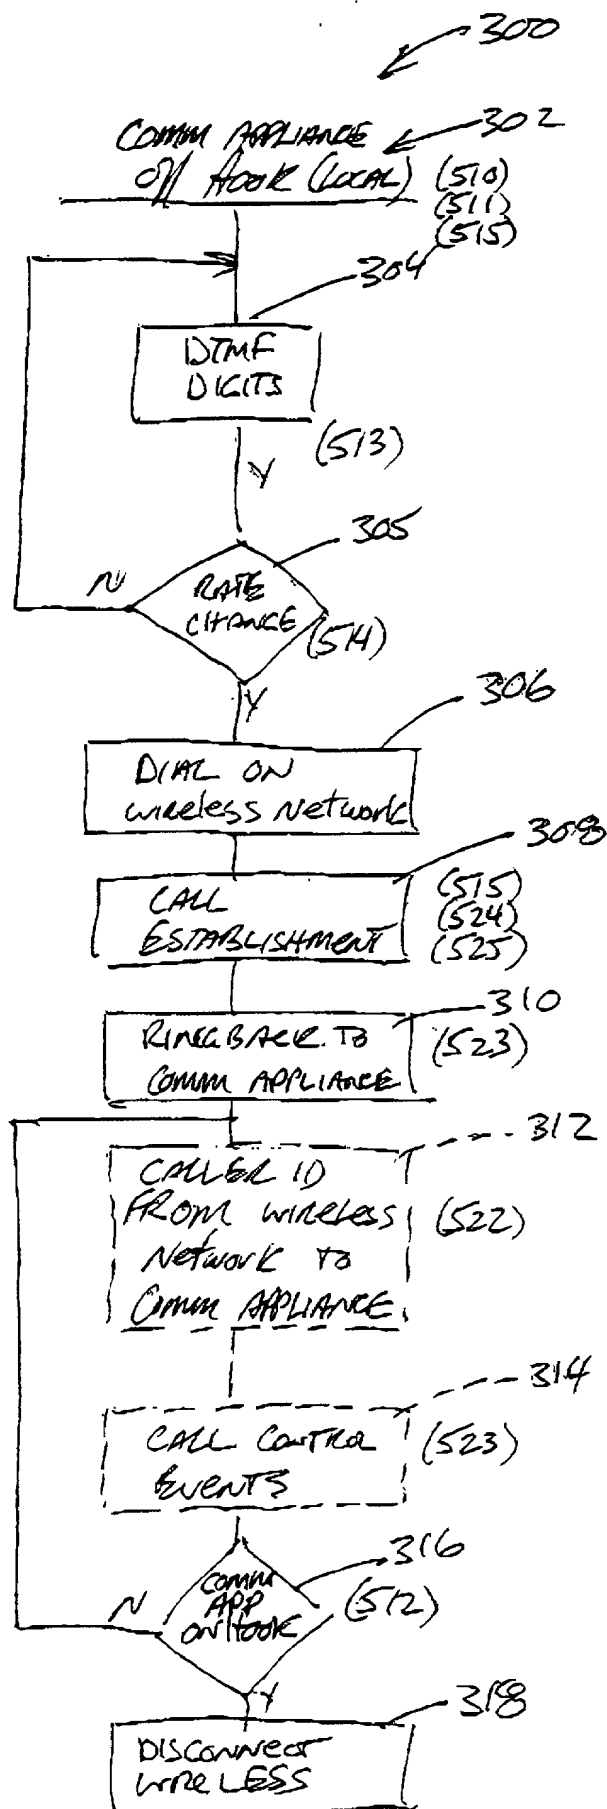 300
302
COMM APPLIANCE
Off Hook (LOCAL) (510)
(511)
(515)
304
DTMF
DIGITS
(513)
Y
305
N
RATE
CHANGE (514)
Y
306
DIAL ON
wireless Network
308
CALL (515)
(524)
ESTABLISHMENT (525)
310
RINGBACK TO (523)
COMM APPLIANCE
312
CALLER ID
FROM wireless (522)
Network TO
COMM APPLIANCE
314
CALL CONTROL (523)
EVENTS
316
N
COMM
APP (512)
ON HOOK
Y
318
DISCONNECT
WIRELESS